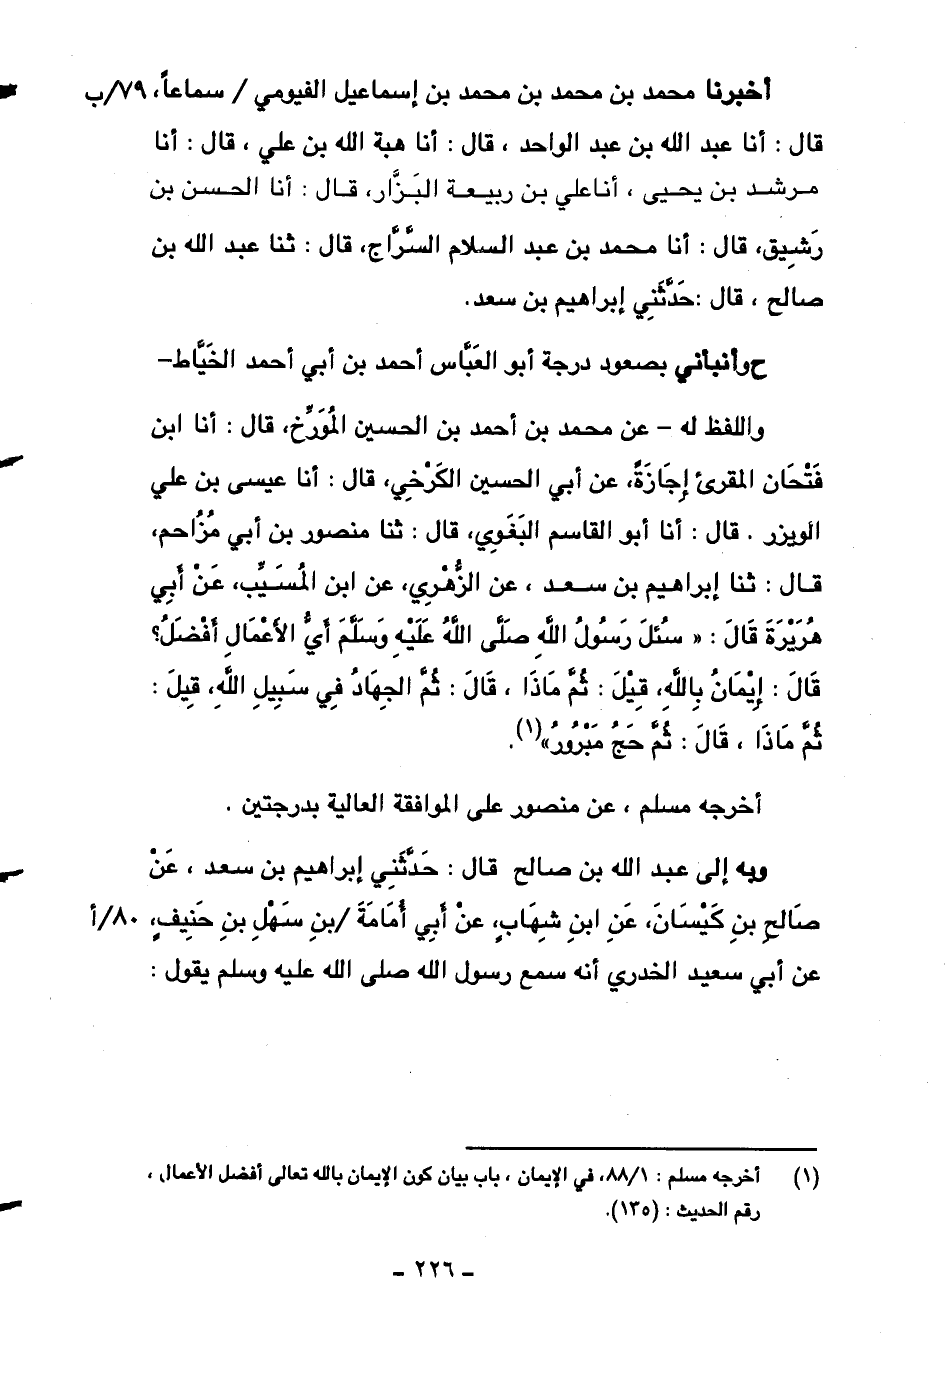 أخبرنا محمد بن محمد بن محمد بن إسماعيل الفيومي / سماعاً، ٧٩/ب
قال : أنا عبد الله بن عبد الواحد ، قال : أنا هبة الله بن علي ، قال : أنا
مرشد بن يحيى ، أناعلي بن ربيعة البَزَّار، قال : أنا الحسن بن
رَشِيق، قال : أنا محمد بن عبد السلام السَّرَّاج، قال : ثنا عبد الله بن
صالح ، قال :حَدَّثَنِي إبراهيم بن سعد.
ح وأنباني بصعود درجة أبو العَبَّاس أحمد بن أبي أحمد الخَيَّاط–
واللفظ له – عن محمد بن أحمد بن الحسين المُوَرِّخ، قال : أنا ابن
فَتْحَان المقرئ إِجَازَةً، عن أبي الحسين الكَرْخي، قال : أنا عيسى بن علي
الويزر . قال : أنا أبو القاسم البَغَوِي، قال : ثنا منصور بن أبي مُزَاحم،
قال : ثنا إبراهيم بن سعد ، عن الزُّهْرِي، عن ابن المُسَيِّب، عَنْ أَبِي
هُرَيْرَةَ قَالَ : « سُئِلَ رَسُولُ اللَّهِ صَلَّى اللَّهُ عَلَيْهِ وَسَلَّمَ أَيُّ الأَعْمَالِ أَفْضَلُ؟
قَالَ : إِيْمَانُ بِاللَّهِ، قِيْلَ : ثُمَّ مَاذَا ، قَالَ : ثُمَّ الجِهَادُ فِي سَبِيلِ اللَّهِ، قِيلَ :
ثُمَّ مَاذَا ، قَالَ : ثُمَّ حَجُ مَبْرُورُ»(١).
أخرجه مسلم ، عن منصور على الموافقة العالية بدرجتين .
وبه إلى عبد الله بن صالح قال : حَدَّثَنِي إبراهيم بن سعد ، عَنْ
صَالحِ بنِ كَيْسَانَ، عَنِ ابنِ شهَابٍ، عنْ أَبِي أُمَامَةَ /بنِ سَهْلِ بنِ حَنِيفٍ، ٨٠/أ
عن أبي سعيد الخدري أنه سمع رسول الله صلى الله عليه وسلم يقول :
(١) أخرجه مسلم : ٨٨/١، في الإيمان ، باب بيان كون الإيمان بالله تعالى أفضل الأعمال ،
رقم الحديث : (١٣٥).
- ٢٢٦ -